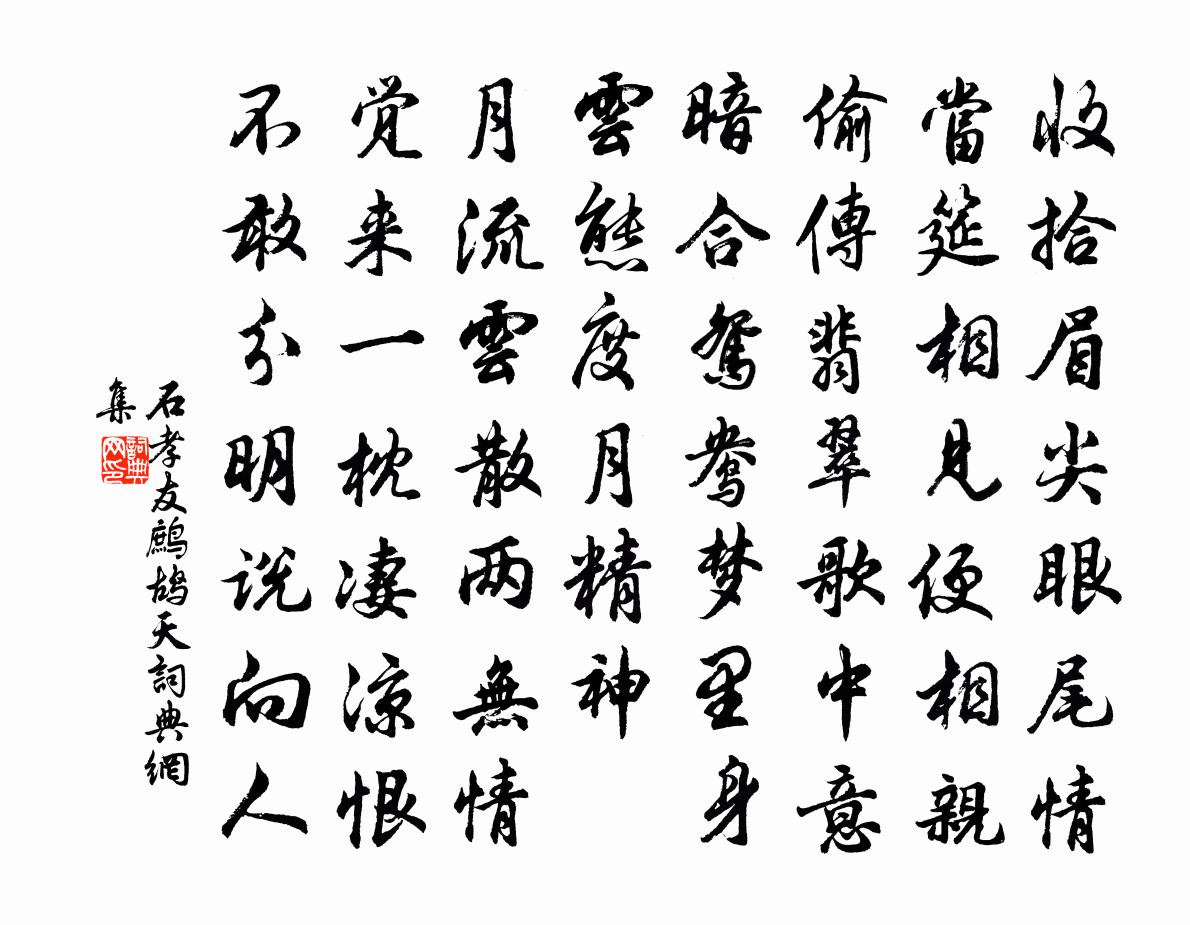 收拾眉尖眼尾情
當筵相見便相親
偷傳翡翠歌中意
暗合鴛鴦梦里身
雲態度月精神
月流雲散两無情
觉来一枕淒涼恨
不敢分明说向人
石孝友鷓鴣天詞典網
集
詞典网印